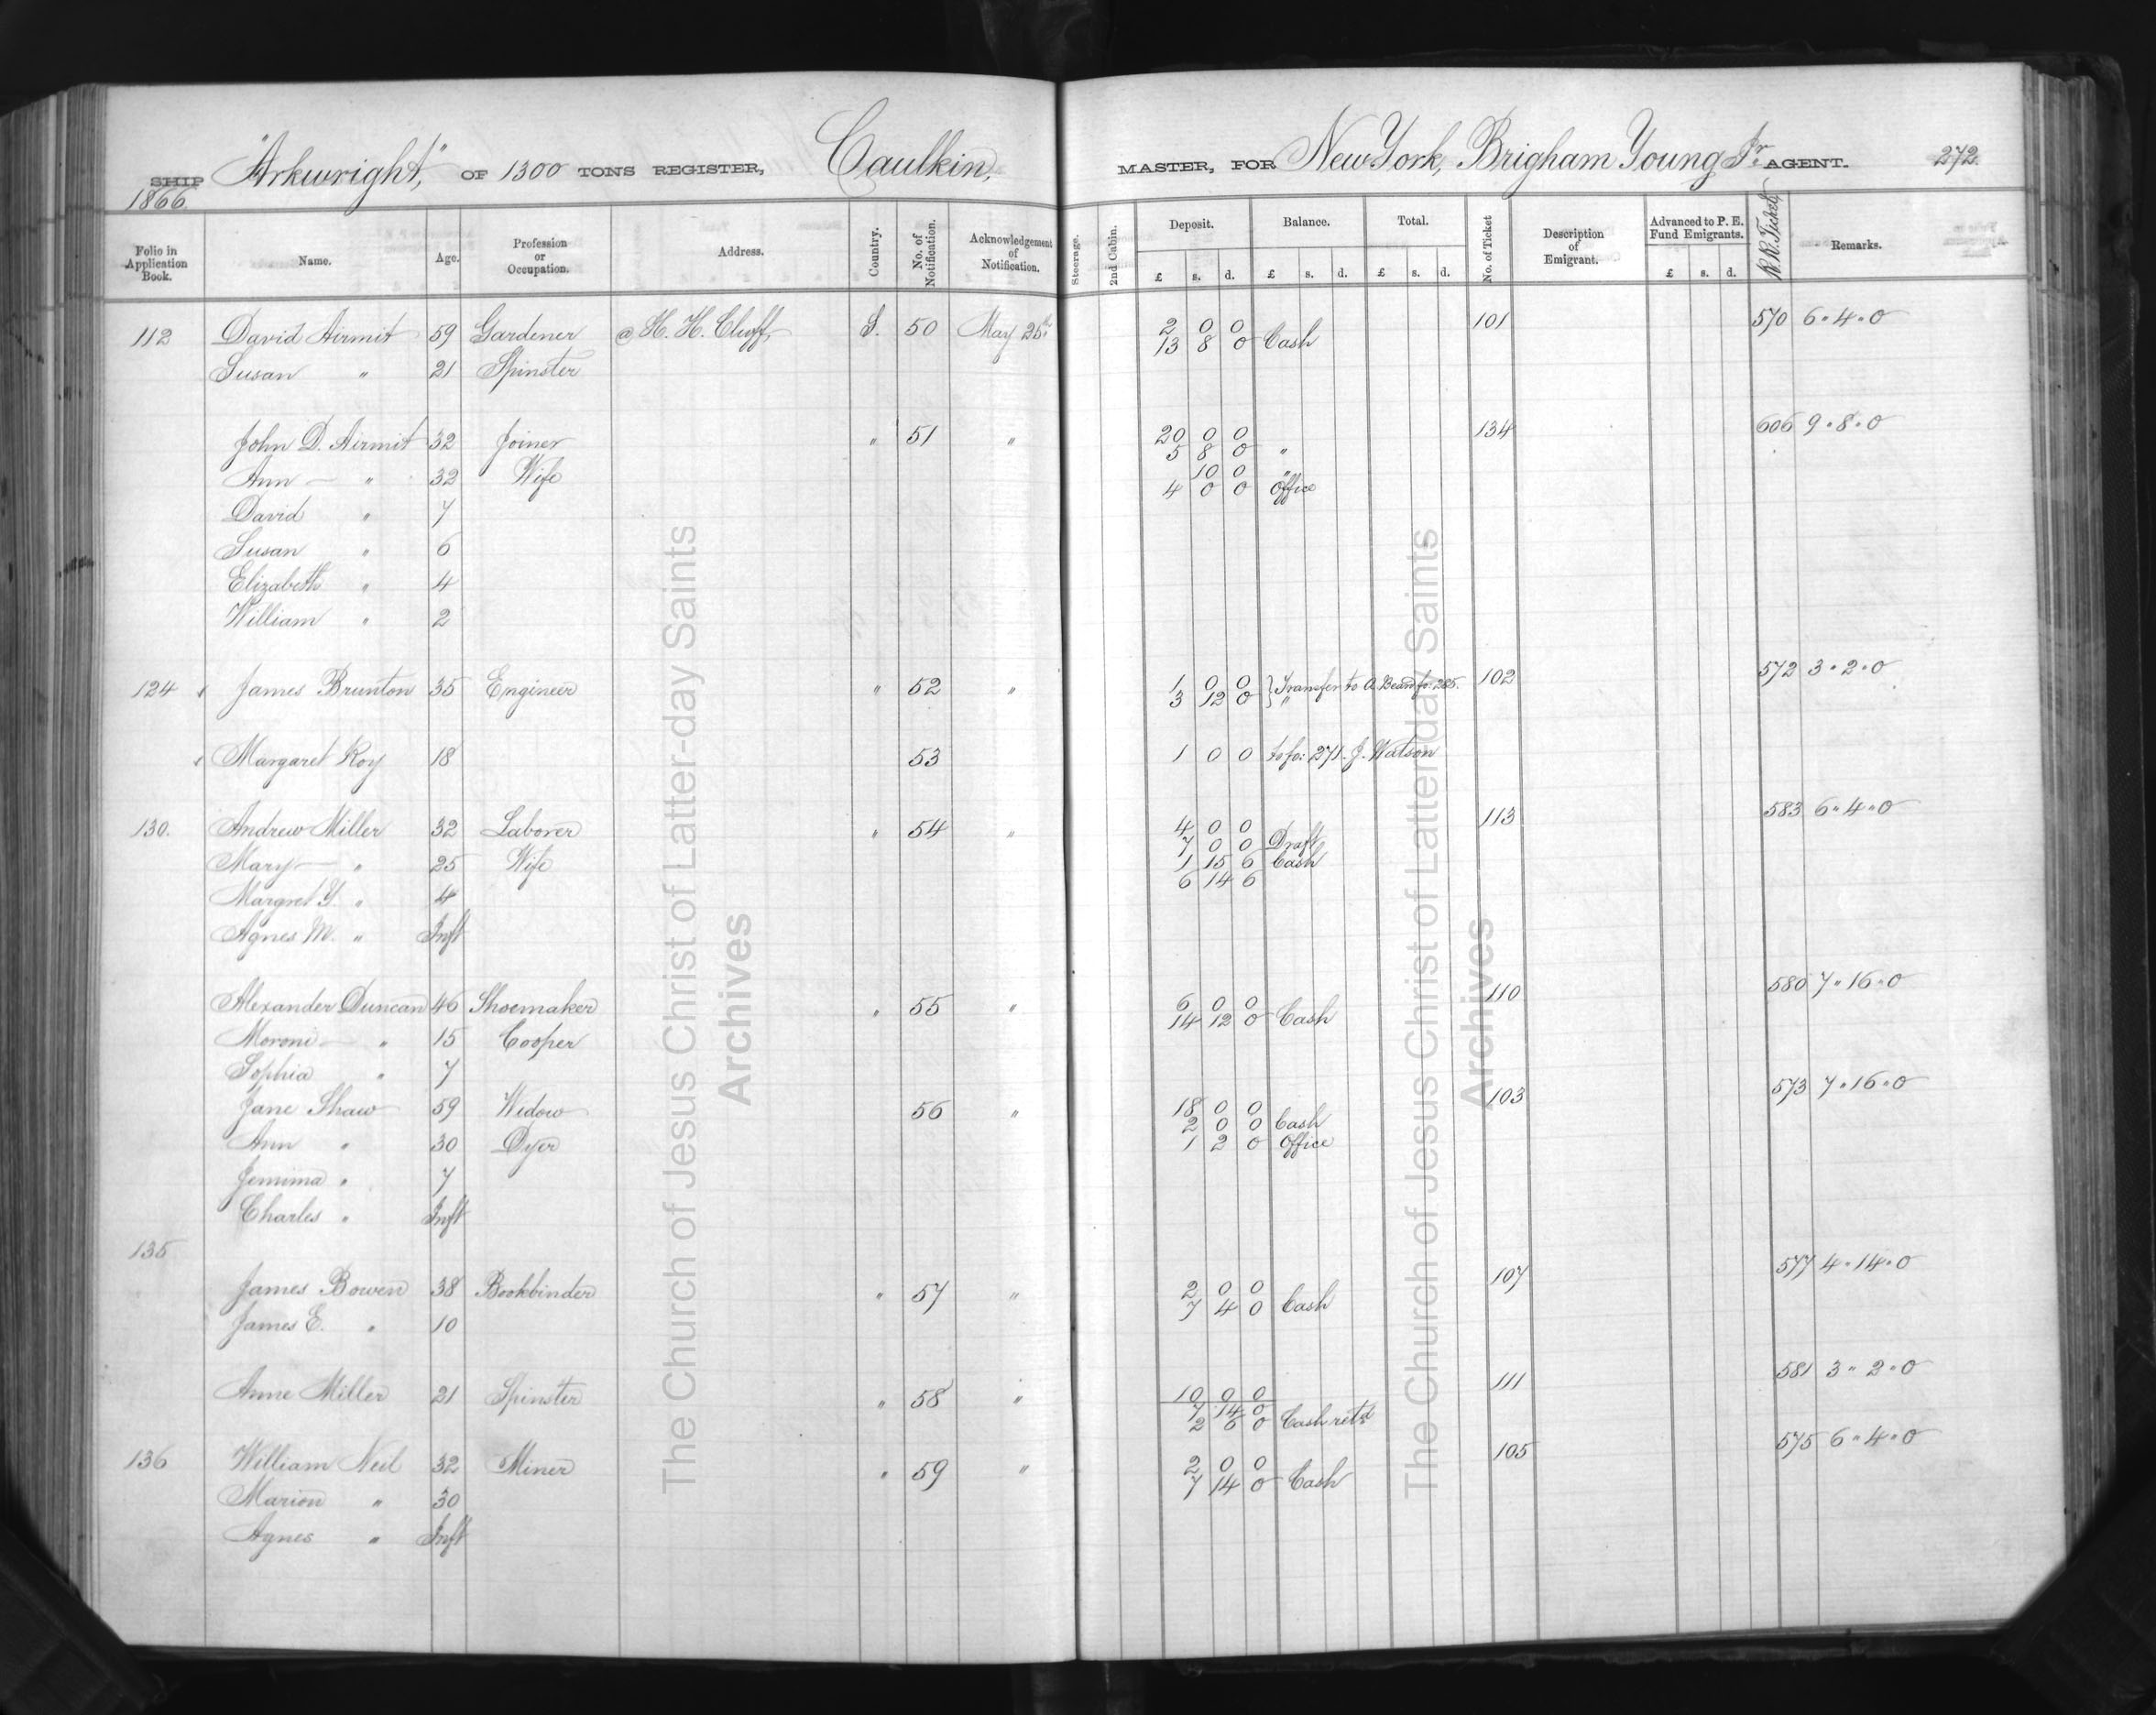 SHIP "Arkwright," OF 1300 TONS REGISTER, Caulkin, MASTER, FOR New York, Brigham Young Jr. AGENT. 272.
1866.
Folio in Application Book. Name. Age. Profession or Occupation. Address. Country. No. of Notification. Acknowledgement of Notification. Steerage. 2nd Cabin. Deposit. Balance. Total. No. of Ticket Description of Emigrant. Advanced to P. E. Fund Emigrants. R.R. Tickets Remarks.
£ s. d. £ s. d. £ s. d. £ s. d.
112 David Airmit 59 Gardener @ H. H. Cluff, S. 50 May 25th 2 0 0 101 570 6 " 4 " 0
13 8 0 Cash
Susan " 21 Spinster
John D. Airmit 32 Joiner " 51 " 20 0 0 134 606 9 " 8 " 0
5 8 0 "
Ann " 32 Wife 10 0 "
4 0 0 Office
David " 7
Susan " 6
Elizabeth " 4
William " 2
124 James Brunton 35 Engineer " 52 " 1 0 0 } Transfer to A. Bean fo: 285. 102 572 3 " 2 " 0
3 12 0 } "
Margaret Roy 18 53 1 0 0 to fo: 271. J. Watson
130. Andrew Miller 32 Laborer " 54 " 4 0 0 113 583 6 " 4 " 0
7 0 0 Draft
Mary " 25 Wife 1 15 6 Cash
6 14 6
Margret Y. " 4
Agnes M. " Inft
Alexander Duncan 46 Shoemaker " 55 " 6 0 0 110 580 7 " 16 " 0
14 12 0 Cash
Moroni " 15 Cooper
Sophia " 7
Jane Shaw 59 Widow 56 " 18 0 0 103 573 7 " 16 " 0
2 0 0 Cash
Ann " 30 Dyer 1 2 0 Office
Jemima " 7
Charles " Inft
135
James Bowen 38 Bookbinder " 57 " 2 0 0 107 577 4 " 14 " 0
7 4 0 Cash
James E. " 10
Anne Miller 21 Spinster " 58 " 10 0 0 111 581 3 " 2 " 0
7 14 0
2 6 0 Cash retd
136 William Neil 32 Miner " 59 " 2 0 0 105 575 6 " 4 " 0
7 14 0 Cash
Marion " 30
Agnes " Inft
The Church of Jesus Christ of Latter-day Saints
Archives
The Church of Jesus Christ of Latter-day Saints
Archives